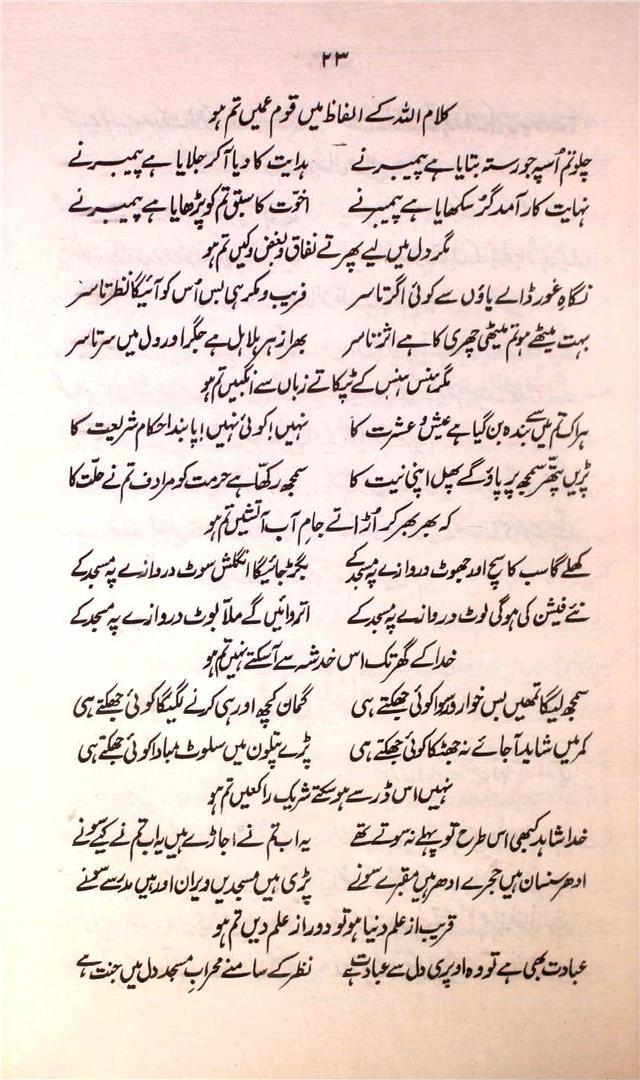 ۲۳
کلام اللہ کے الفاظ میں قوم عمیں تم ہو
چلو تم اُسپر جو رستہ بتایا ہے پیمبر نے ہدایت کا دیا آ کر جلایا ہے پیمبر نے
نہایت کارآمد گُر سکھایا ہے پیمبر نے اخوّت کا سبق تم کو پڑھایا ہے پیمبر نے
مگر دل میں لیے پھرتے نفاق و بغض و کیں تم ہو
نگاہِ غور ڈالے پاؤں سے کوئی اگر تا سر فریب و مکر ہی بس اُس کو آئیگا نظر تا سر
بہت میٹھے ہو تم میٹھی چھری کا ہے اثر تا سر بھرا زہر ہلاہل ہے جگر اور دل میں سر تا سر
مگر ہنس ہنس کے ٹپکاتے زباں سے انگبیں تم ہو
ہر اک تم میں سے بندہ بن گیا ہے عیش و عشرت کا نہیں! کوئی نہیں! پابند احکام شریعت کا
پڑیں پتھر سمجھ پر پاؤ گے پھل اپنی نیت کا سمجھ رکھا ہے حرمت کو مرادف تم نے حلّت کا
کہ بھر بھر کر اُڑاتے جامِ آب آتشیں تم ہو
کھلے گا سب کا سچ اور جھوٹ دروازے پہ مسجد کے بگڑ جائیگا انگلش سوٹ دروازے پہ مسجد کے
نئے فیشن کی ہوگی لوٹ دروازے پہ مسجد کے اتروائیں گے ملّا بوٹ دروازے پہ مسجد کے
خدا کے گھر تک اس خدشہ سے آ سکتے نہیں تم ہو
سمجھ لیگا تمھیں بس خوار و رسوا کوئی جھکتے ہی گمان کچھ اور ہی کرنے لگیگا کوئی جھکتے ہی
کمر میں شاید آ جائے نہ جھٹکا کوئی جھکتے ہی پڑے پتلون میں سلوٹ مبادا کوئی جھکتے ہی
نہیں اس ڈر سے ہو سکتے شریک راکعیں تم ہو
خدا شاہد کبھی اس طرح تو پہلے نہ سوتے تھے یہ اب تم نے اجاڑے ہیں یہ اب تم نے کیے سونے
ادھر سنسان ہیں حجرے ادھر ہیں مقبرے سونے پڑی ہیں مسجدیں ویران اور ہیں مدرسے سونے
قریب از علم دنیا ہو تو دور از علم دیں تم ہو
عبادت بھی ہے تو وہ اوپری دل سے عبادت ہے نظر کے سامنے محراب مسجد دل میں جنت ہے